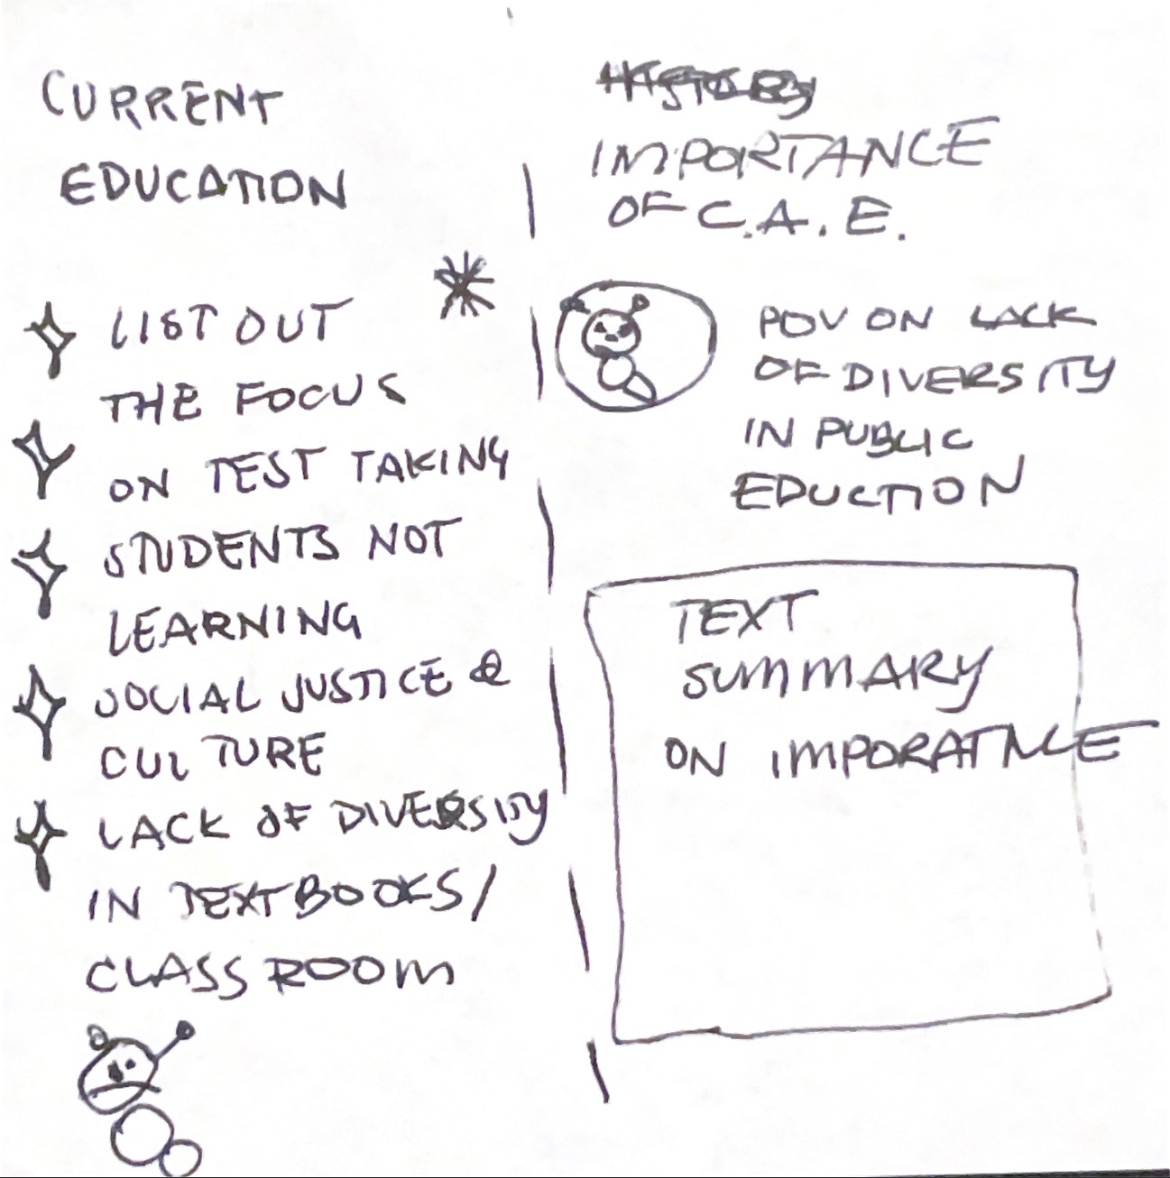 CURRENT
EDUCATION
LIST OUT
THE FOCUS
ON TEST TAKING
STUDENTS NOT
LEARNING
SOCIAL JUSTICE &
CULTURE
LACK OF DIVERSITY
IN TEXTBOOKS/
CLASSROOM
HISTORY
IMPORTANCE
OF C.A.E.
POV ON LACK
OF DIVERSITY
IN PUBLIC
EDUCTION
TEXT
SUMMARY
ON IMPORATNCE